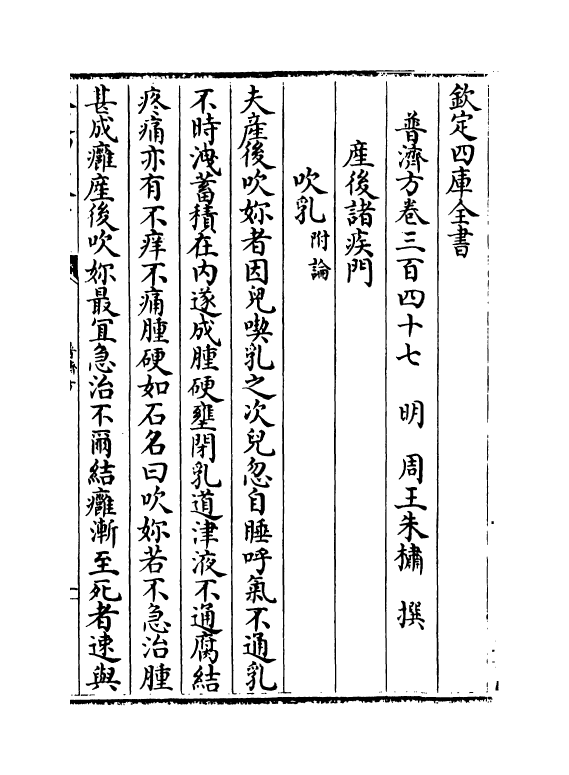 欽定四庫全書
普濟方卷三百四十七　明　周王朱橚　撰
産後諸疾門
吹乳附論
夫産後吹妳者因兒喫乳之次兒忽自睡呼氣不通乳
不時洩蓄積在内遂成腫硬壅閉乳道津液不通腐結
疼痛亦有不痒不痛腫硬如石名曰吹妳若不急治腫
甚成癰産後吹妳最宜急治不爾結癰漸至死者速與